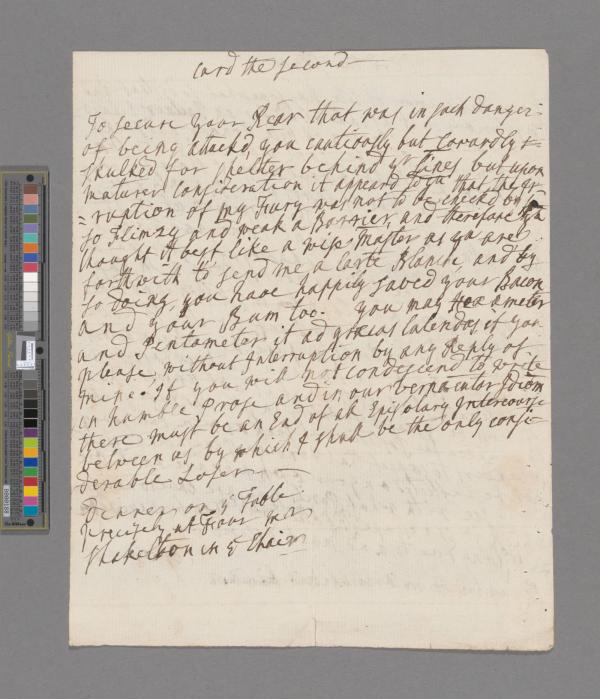 card the second
To secure your Rear that was in such danger
of being attackd, you cautiously but cowardly
skulked for shelter behind yr Lines but upon
maturer consideration it appeard to you that the ir=
=ruption of my Fury was not to be checked by
so Flimzy and weak a Barrier, and therefore you
thought it best like a wise Master as you are
forthwith to send me a Carte Blanche, and by
so doing you have happily saved your Bacon
and your Bum too. You may Hexameter
and Pentameter it ad græcas Calendas if you
please without Interruption by any Reply of
mine. If you will not condescend to write
in humble Prose and in our vernacular Idiom
there must be an End of all Epistolary Intercourse
between us by which I shall be the only consi-
derable Loser
Dinner on ye Table
precisely at Four Mr
Shakelton in ye Chair